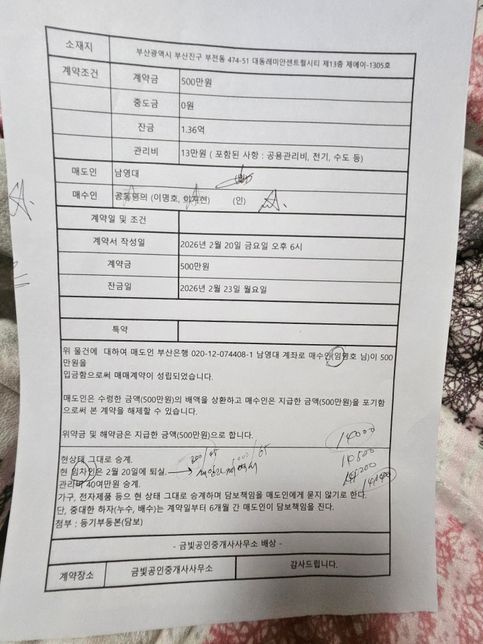 소재지 부산광역시 부산진구 부전동 474-51 대동레미안센트럴시티 제13층 제에이-1305호
계약조건 계약금 500만원
중도금 0원
잔금 1.36억
관리비 13만원 ( 포함된 사항 : 공용관리비, 전기, 수도 등)
매도인 남영대
매수인 공동명의 (이명호, 현) (인)
계약일 및 조건
계약서 작성일 2026년 2월 20일 금요일 오후 6시
계약금 500만원
잔금일 2026년 2월 23일 월요일
특약
위 물건에 대하여 매도인 부산은행 020-12-074408-1 남영대 계좌로 매수인(임명호 님)이 500
만원을
입금함으로써 매매계약이 성립되었습니다.
매도인은 수령한 금액(500만원)의 배액을 상환하고 매수인은 지급한 금액(500만원)을 포기함
으로써 본 계약을 해제할 수 있습니다.
위약금 및 해약금은 지급한 금액(500만원)으로 합니다.
14000
현상태 그대로 승계.
10500
현 임차인은 2월 20일에 퇴실.
관리비 40여만원 승계.
가구, 전자제품 등으 현 상태 그대로 승계하며 담보책임을 매도인에게 묻지 않기로 한다.
단, 중대한 하자(누수, 배수)는 계약일부터 6개월 간 매도인이 담보책임을 진다.
첨부 : 등기부등본(담보)
- 금빛공인중개사사무소 배상 -
계약장소 금빛공인중개사사무소 감사드립니다.